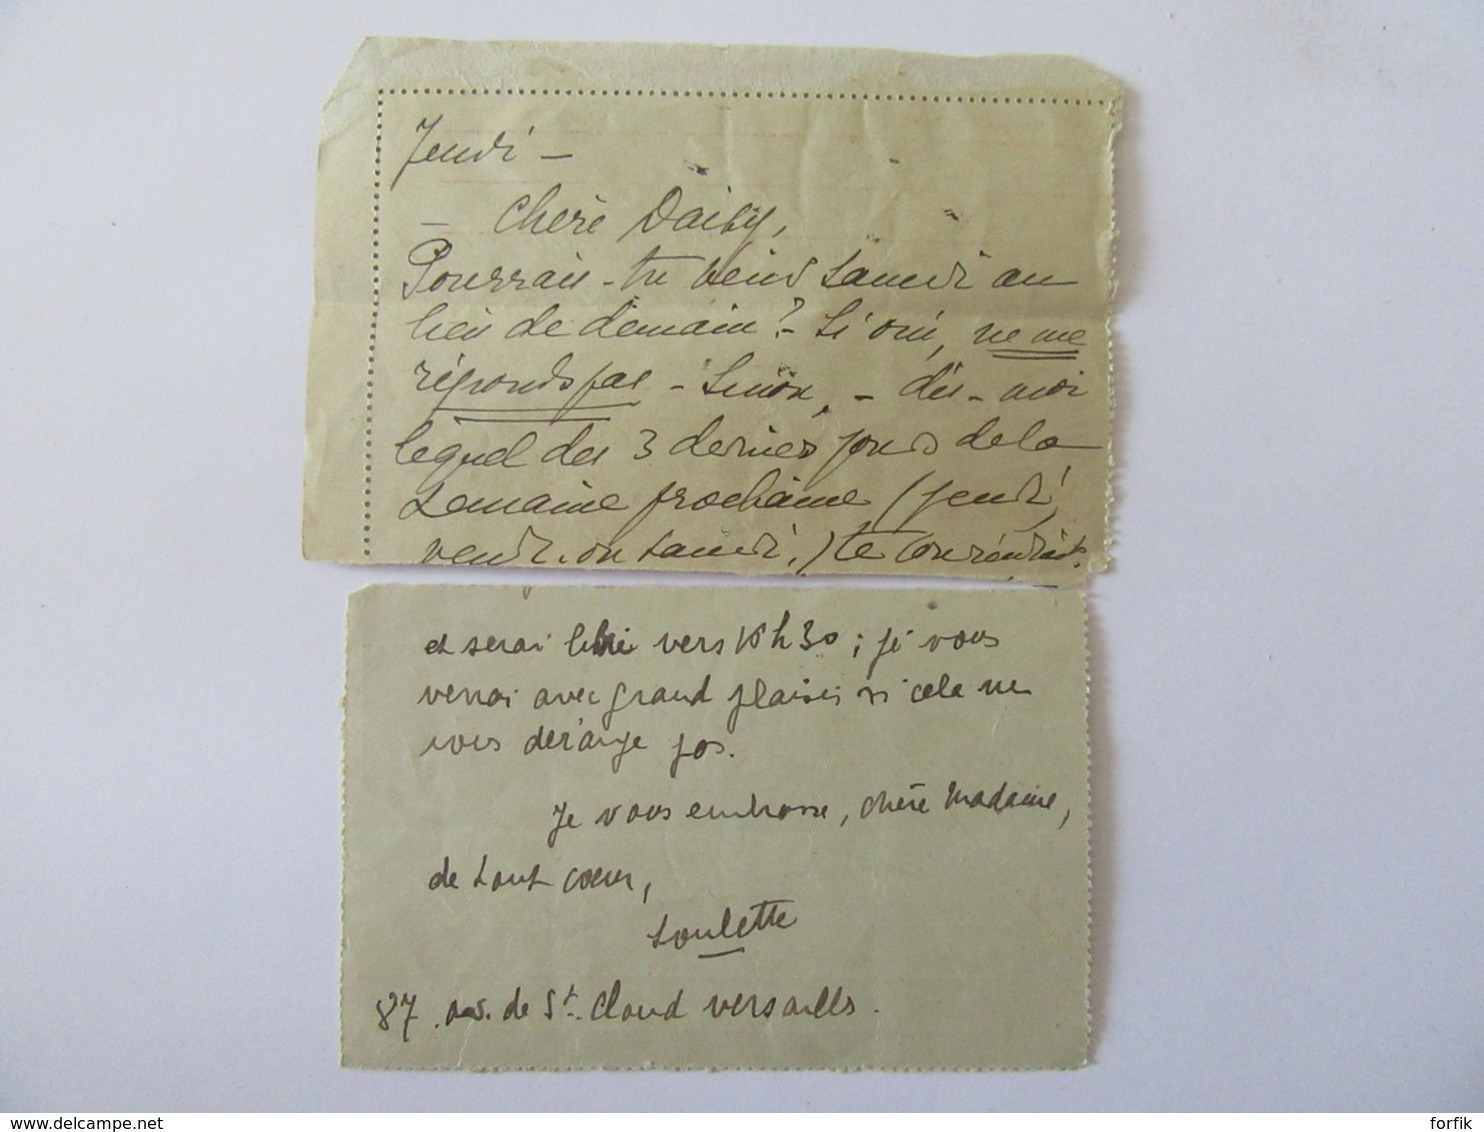 Jeudi -
- Chère Daisy,
Pourrais-tu venir samedi au
lieu de demain? - Si oui, ne me
réponds pas - Sinon, - dis-moi
lequel des 3 derniers jours de la
semaine prochaine (jeudi,
vendr. ou samedi,) te conviendrait.
et serai libre vers 16h30 ; je vous
verrai avec grand plaisir si cela ne
vous dérange pas.
Je vous embrasse, chère Madame,
de tout cœur,
Loulette
87. av. de St. Cloud Versailles.
delcampe.net
forfik